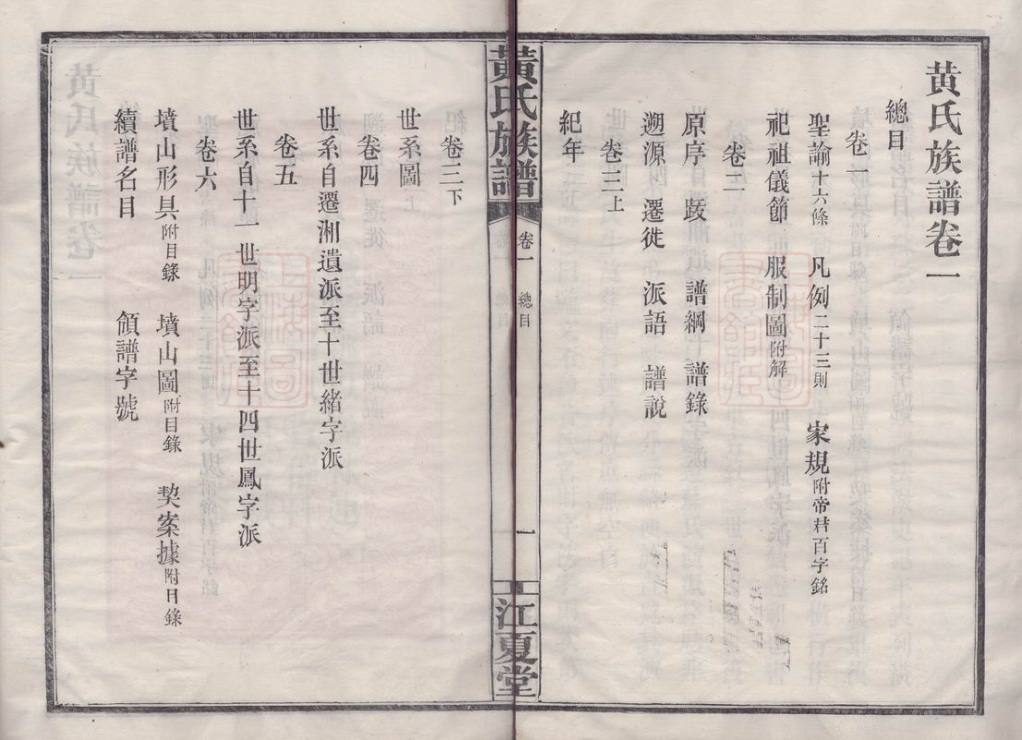 黃氏族譜卷一
總目
卷一
聖諭十六條 凡例二十三則 家規附帝君百字銘
祀祖儀節 服制圖附解
卷二
原序 跋 譜綱 譜錄
遡源 遷徙 派語 譜說
卷三上
紀年
黃氏族譜 卷一 總目 一 江夏堂
卷三下
世系圖
卷四
世系自遷湘遺派至十世緒字派
卷五
世系自十一世明字派至十四世鳳字派
卷六
墳山形具附目錄 墳山圖附目錄 契案據附目錄
續譜名目 領譜字號